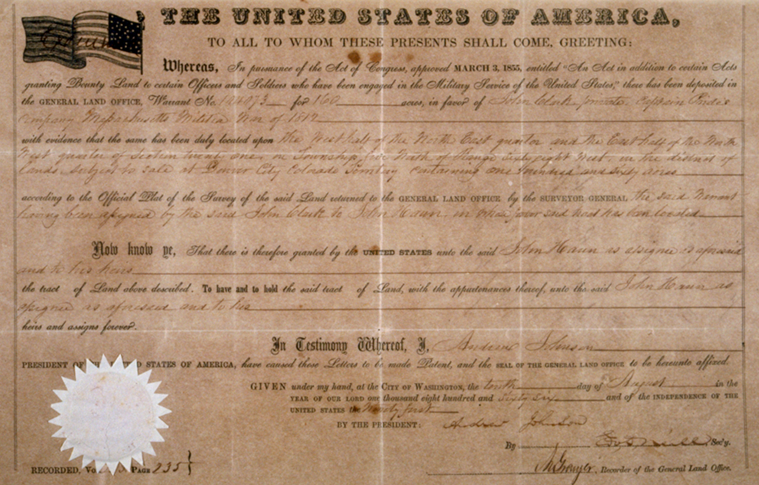 THE UNITED STATES OF AMERICA,
TO ALL TO WHOM THESE PRESENTS SHALL COME, GREETING:
Whereas, In pursuance of the Act of Congress, approved MARCH 3, 1855, entitled "An Act in addition to certain Acts
granting Bounty Land to certain Officers and Soldiers who have been engaged in the Military Service of the United States," there has been deposited in
the GENERAL LAND OFFICE, Warrant No. for 160 acres, in favor of John Clark private Captain
Company Massachusetts Militia War of 1812
with evidence that the same has been duly located upon the West half of the North East quarter and the East half of the North
West quarter of Section twenty one in Township five North of Range sixty eight West in the district of
lands Subject to sale at Denver City Colorado Territory containing one hundred and sixty acres
according to the Official Plat of the Survey of the said Land returned to the GENERAL LAND OFFICE by the SURVEYOR GENERAL the said Warrant
having been assigned by the said John Clark to John in favor said tract has been located
Now know ye, That there is therefore granted by the UNITED STATES unto the said John as assignee as aforesaid
and to his heirs
the tract of Land above described. To have and to hold the said tract of Land, with the appurtenances thereof, unto the said John as
assignee as aforesaid and to his
heirs and assigns forever.
In Testimony Whereof, I, Andrew Johnson
PRESIDENT OF STATES OF AMERICA, have caused these Letters to be made Patent, and the SEAL OF THE GENERAL LAND OFFICE to be hereunto affixed.
GIVEN under my hand, at the CITY OF WASHINGTON, the tenth day of August in the
YEAR OF OUR LORD one thousand eight hundred and sixty six and of the INDEPENDENCE OF THE
UNITED STATES the Ninety first
BY THE PRESIDENT: Andrew Johnson
By Sec'y.
RECORDED, Page 235 Recorder of the General Land Office.